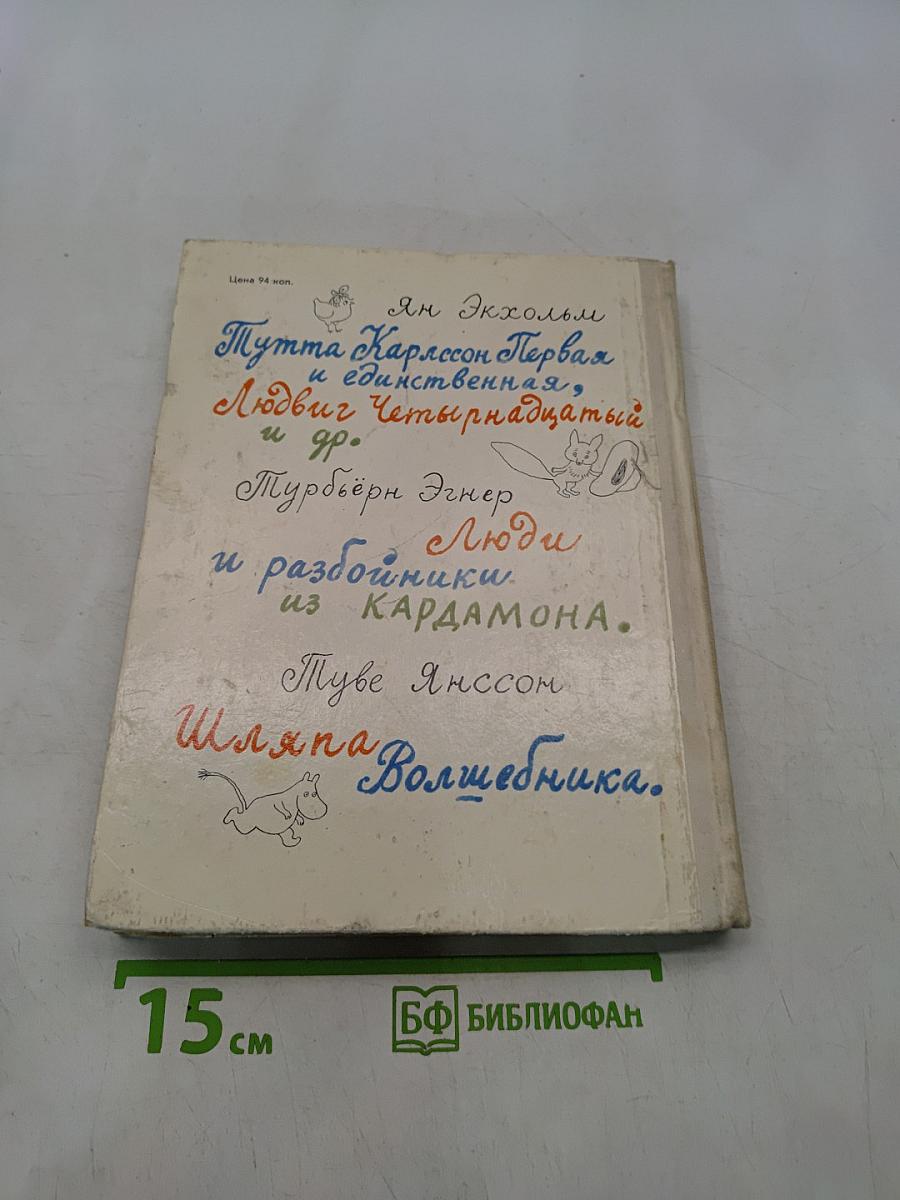 Цена 94 коп.
Ян Экхольм
Тутта Карлссон Первая
и единственная,
Людвиг Четырнадцатый
и др.
Турбьёрн Эгнер
Люди
и разбойники
из КАРДАМОНА.
Туве Янссон
Шляпа
Волшебника.
15 см
БФ БИБЛИОФАН